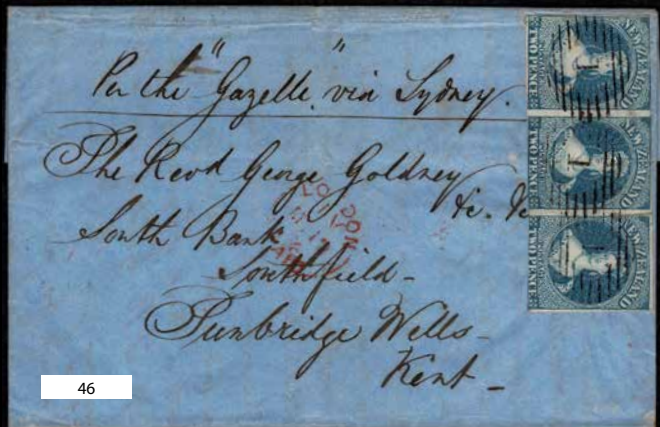 Per the "Gazelle" via Sydney.
The Revd George Goldney
&c. &c
South Bank
Southfield -
Tunbridge Wells -
Kent -
LONDON
NEW ZEALAND
TWO PENCE
NEW ZEALAND
TWO PENCE
NEW ZEALAND
TWO PENCE
46